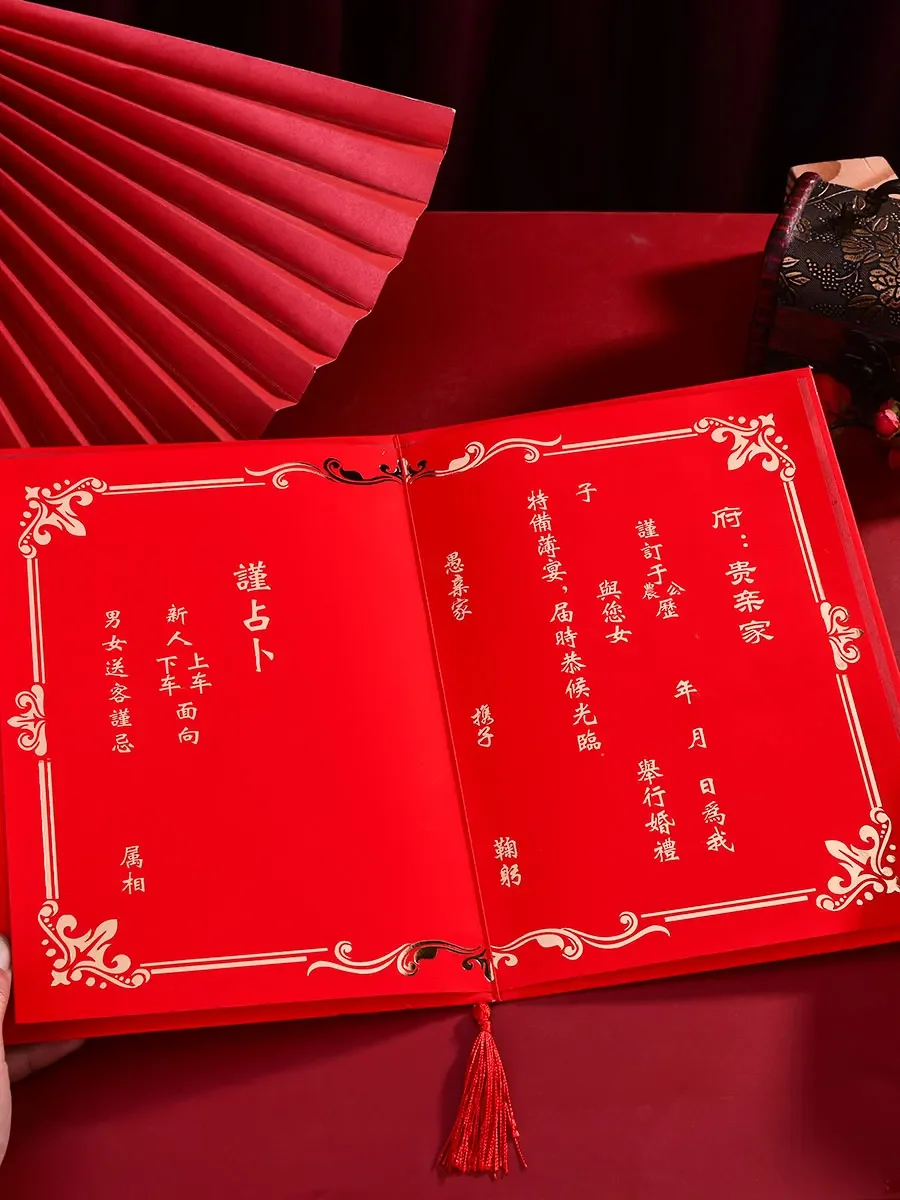 府：贵亲家
謹訂于公歷農 年 月 日為我
子 與您女 舉行婚禮
特備薄宴，届時恭候光臨
愚亲家 携子 鞠躬
謹占卜
新人上车下车面向
男女送客謹忌 属相